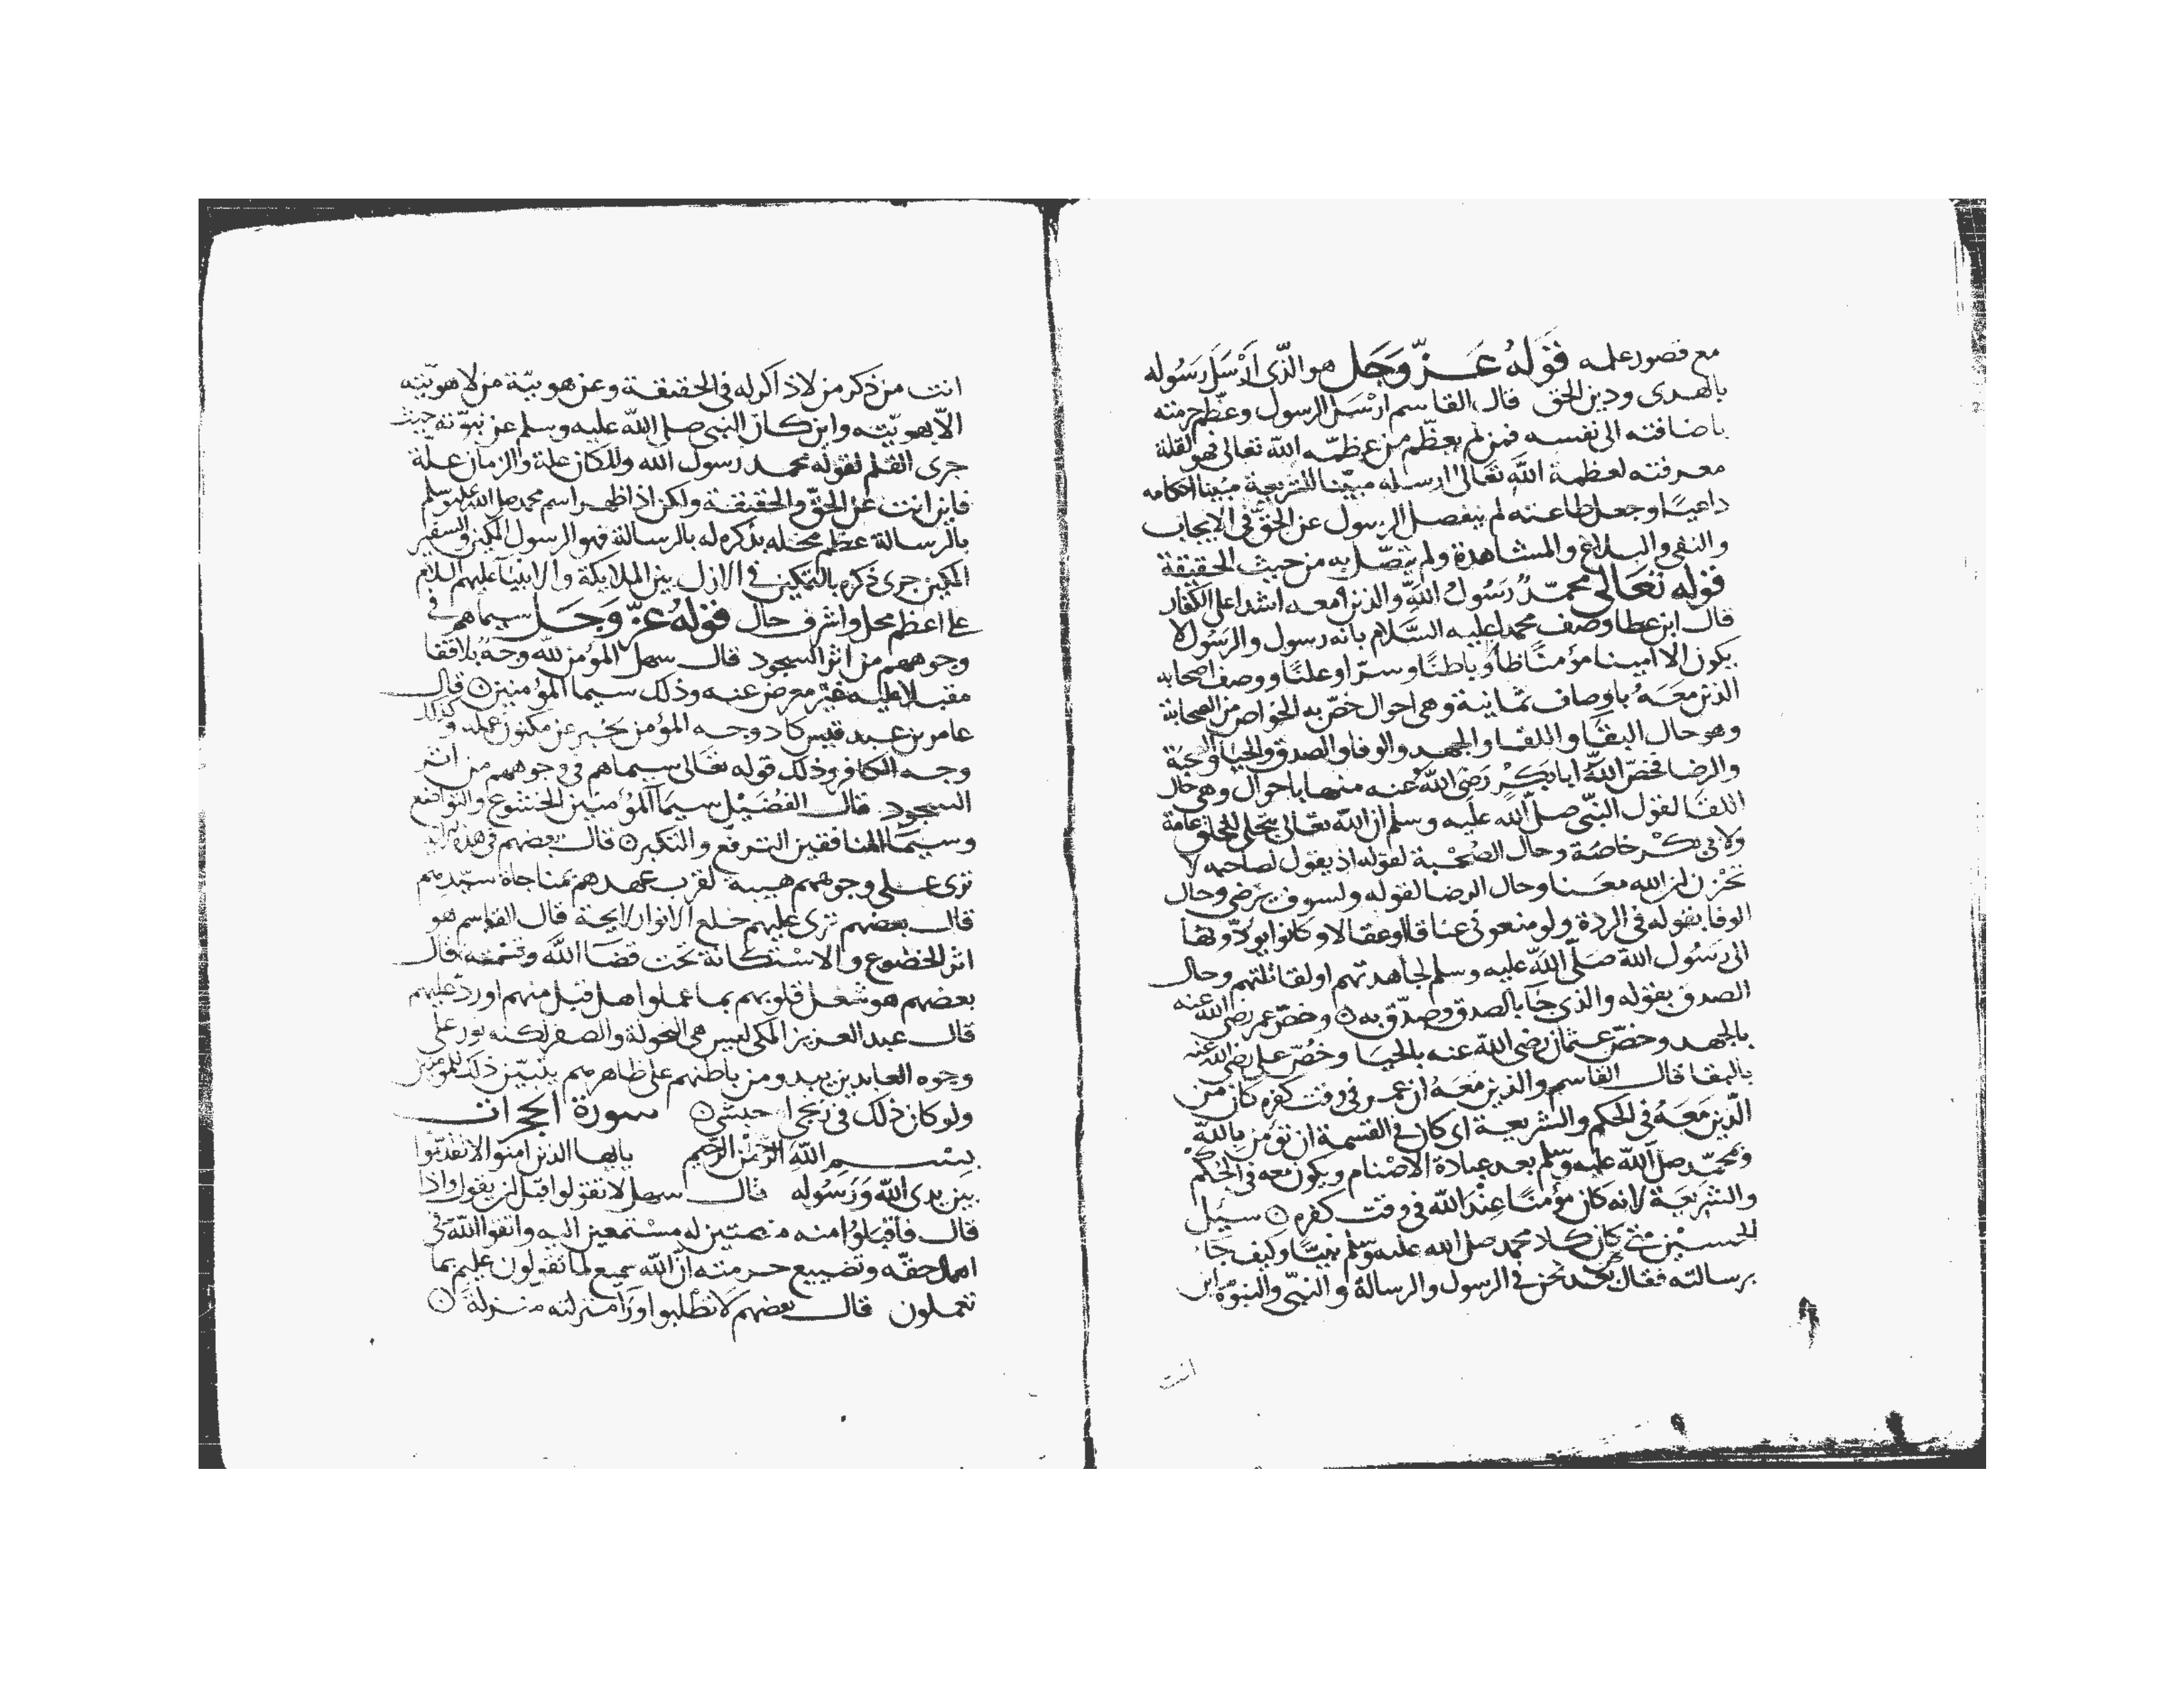 مع قصور علمه قوله عزّ وجَل هو الذّى أرْسَل رَسُوله
بالهدى ودين الحق قال القاسم ارْسَل الرسول وعظّم حرمته
باضافته الى نفسه فمن لم يعظّم من عظمّه الله تعالى فهو لقلة
معرفته لعظمة الله تعَالى ارسله مبيّنا للشريعة مبُينا احكامه
داعيًا وجعل طاعته لم ينفصل الرسول عن الحقّ فى الايجاب
والنفى والبلاغ والمشاهدة ولم يتصّل به من حيث الحقيقة
قوله تعَالى محمّدٌ رَسُولُ اللهِ والذين معه اشداء على الكفار
قال ابن عطا وصف محمدا عليه السّلام بانه رسول والرسُول لا
يكون الا امينا مؤمنًا ظاهرًا وباطنًا وسرّا وعلنًا ووصف اصحابه
الذين معَهُ باوصاف ثمانية وهى احوال خصّ به الخواص من الصحابة
وهو حال البقَا واللقا والجهد والوفا والصدق والحيا والصحبة
والرضا فخصّ اللهُ ابا بَكْر رَضى اللهُ عنه منها باحوال وهى حال
اللقا لقول النبّى صلى الله عليه وسلم ان الله تعالى يتجلى للخلق عامة
ولابى بكر خاصَة وحال الصُحْبة لقوله اذ يقول لصاحبه لا
تحْزن ان الله معَنا وحال الرضا لقوله ولسوف يَرضى وحال
الوفا بقوله فى الردة ولو منعونى عناقا او عقالا وكانوا يؤدّونها
الى رسُول الله صَلّى الله عليه وسلم لجاهدتهم او لقاتلتهم وحال
الصدق بقوله والذى جَا بالصدق وصدّق به ٥ وخصّ عمر رضى الله عنه
بالجهد وخصّ عثمان رضى الله عنه بالحيَا وخُصّ على رضى الله عنه
بالبقا قال القاسم والذين معَهُ ان عمر فى وقت كفره كان من
الّذين مَعَهُ فى الحكم والشريعة اى كان فى القسمة ان تؤمن بالله
ومحمّد صلى الله عليه وسّلم بعد عبادة الاصْنام ويكون معه فى الحُكم
والشريعَة لانه كان مؤمنًا عِنْدَ الله فى وقت كفره ٥ سيَل
الحسيْن متى كان محمد صلى الله عليه وسّلم نبيًا وكيف جا
برسالته فقال نحن فى الرسول والرسالة والنبّى والنبوة اين
انت
انت من ذكر من لا ذاكر له فى الحقيقة وعن هويّة من لا هويّته
الاّ بهويّته واين كان النبى صلى الله عليه وسلم عن نبوّته حيث
جرى القلم لقوله محمد رسول الله والمكان علة والزمان علّة
فاين انت عن الحقّ والحقيقة ولكن اذا ظهر اسم محمد صلى الله عليه وسلم
بالرسالة عظّم محله بذكره له بالرسالة فهو الرسول المكين والسفير
المكين جرى ذكره بالتمكين فى الازل بين الملايكة والانبيَا عليهم السلام
على اعظم محل واشرف حال قوله عزّ وَجَل سيماهم فى
وجوههم من اثر السجود قال سهل المؤمن لله وجهُ بلا قفا
مقبلا عليه غيْر معرض عنه وذلك سيما المؤمنين ٥ قال
عامر بن عبد قيس كاد وجه المؤمن يخبر عن مكنون عمله وكذلك
وجه الكافر وذلك قوله تعَالى سيماهم فى وجوههم من اثر
السجود قال الفُضَيْل سيمَا المؤمنين الخشوع والتواضع
وسيمَا المنافقين الترفّع والتكبر ٥ قال بعضهم فى هذه الاية
ترى على وجوههم هيبة لقرب عهدهم بمناجاة سيّدهم
قال بعضهم ترى عليهم خلع الانوار لايحة قال القاسم هو
اثر الخضوع والاسْتكانة تحت قضَا اللهَ قال
بعضهم هو شغل قلوبهم بما عملوا هل قبل منهم او ردّ عليهم
قال عبد العزيز المكى ليس هى النحولة والصفر لكنه نور على
وجوه العابدين يبدو من باطنهم على ظاهرهم يتبيّن ذلك للمؤمنين
ولو كان ذلك فى زنجى او حبشى ٥ سورة الحجرات
بِسْمِ اللهِ الرّحْمن الرّحيم يايها الذين امنوا لا تقدّموا
بين يدى الله وَرَسُوله قال سهل لا تقولوا قبْل ان يقول واذا
قال فاقبلوُا منه منصتين له مستمعين اليه واتقوا الله فى
اهمال حقّه وتضييع حرمته انّ الله سميع لما تقولون عليم بما
تعملون قال بعضهم لا تطْلبوا ورَا منزلته منزلة ٥